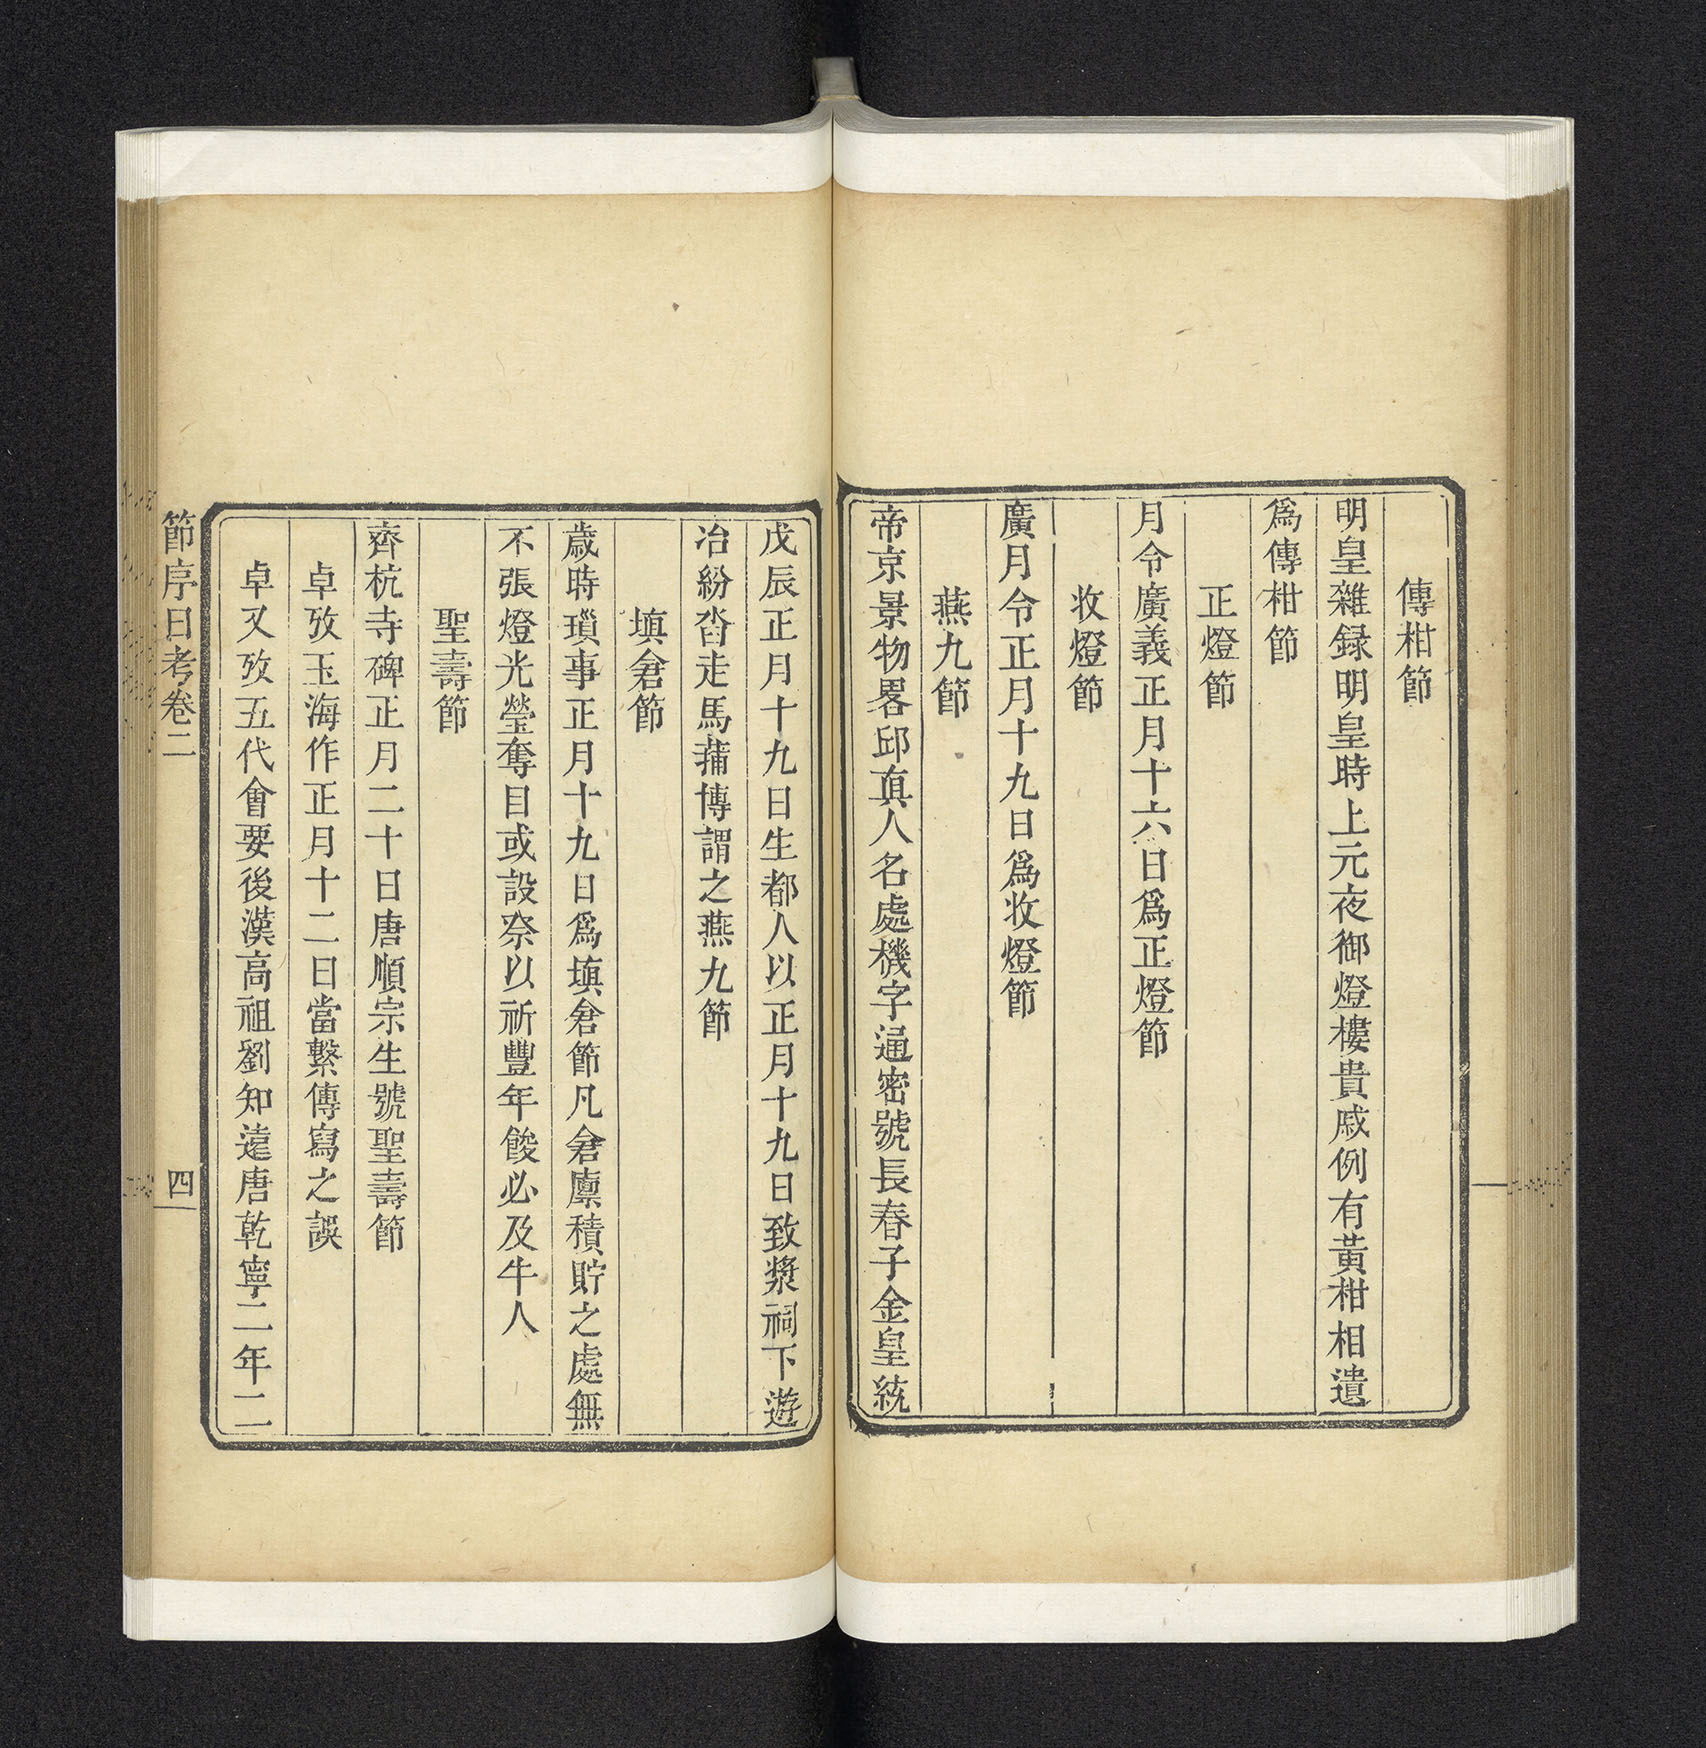 傳柑節
明皇雜録明皇時上元夜御燈樓貴戚例有黃柑相遺
爲傳柑節
正燈節
月令廣義正月十六日爲正燈節
收燈節
廣月令正月十九日爲收燈節
燕九節
帝京景物畧邱眞人名處機字通密號長春子金皇統
戊辰正月十九日生都人以正月十九日致漿祠下遊
冶紛沓走馬蒱博謂之燕九節
塡倉節
歲時瑣事正月十九日爲塡倉節凡倉廩積貯之處無
不張燈光瑩奪目或設祭以祈豐年餕必及牛人
聖壽節
齊杭寺碑正月二十日唐順宗生號聖壽節
卓攷玉海作正月十二日當繫傳寫之誤
卓又攷五代會要後漢高祖劉知遠唐乾寧二年二
節序日考卷二
四